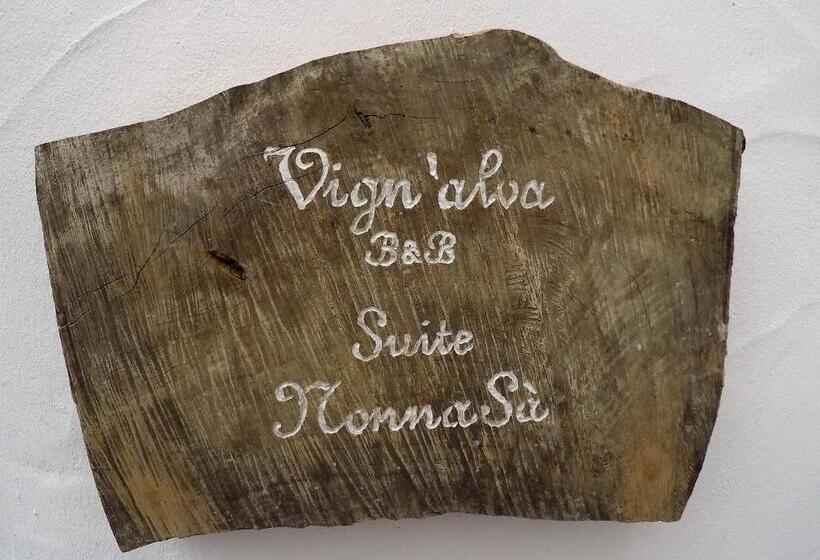 Vign'alva
B&B
Suite
Nonna Sà